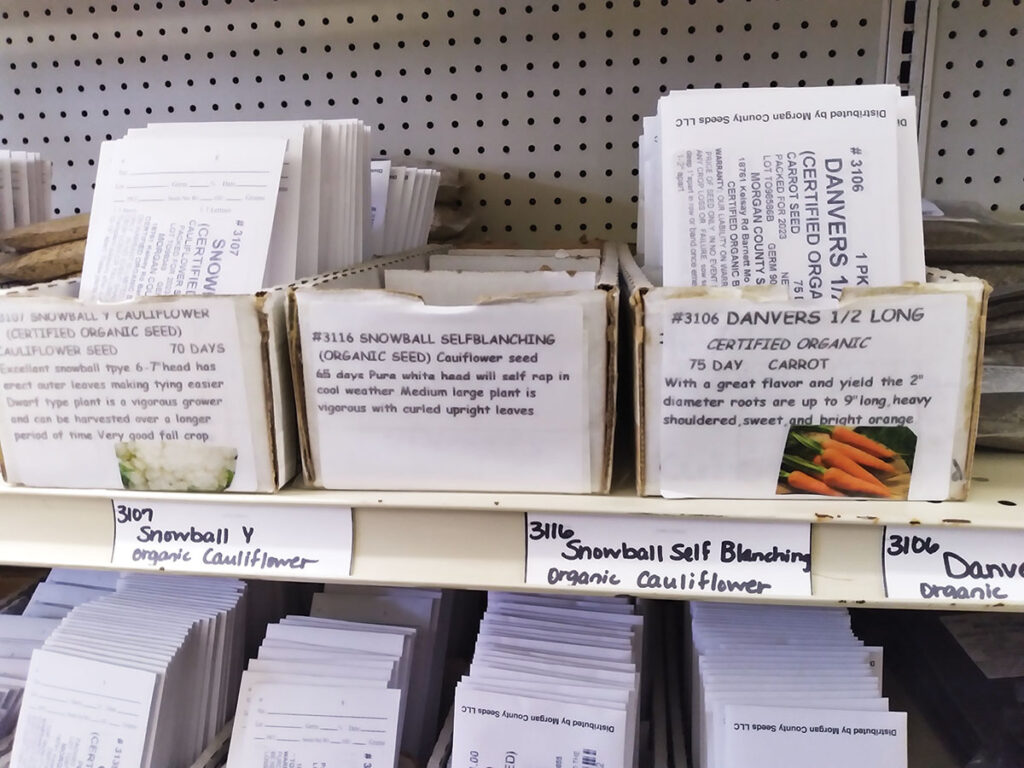 # 3107
SNOW
(CERTIFIE
Distributed by Morgan County Seeds LLC
# 3106 1 PK
DANVERS 1/
(CERTIFIED ORGA
CARROT SEED 75
PACKED FOR 2023
LOT
GERM 90
MORGAN COUNTY S
18761 Kelsay Rd Barnett Mo
CERTIFIED ORGANIC B
WARRANTY: OUR LIABILITY ON WARR
PRICE OF SEED ONLY. IN NO EVENT
ANY CROP LOSS OR FAILURE
3107 SNOWBALL Y CAULIFLOWER
(CERTIFIED ORGANIC SEED)
CAULIFLOWER SEED 70 DAYS
Excellent snowball tpye 6-7" head has
erect outer leaves making tying easier
Dwarf type plant is a vigorous grower
and can be harvested over a longer
period of time Very good fall crop
#3116 SNOWBALL SELFBLANCHING
(ORGANIC SEED) Cauiflower seed
65 days Pure white head will self rap in
cool weather Medium large plant is
vigorous with curled upright leaves
#3106 DANVERS 1/2 LONG
CERTIFIED ORGANIC
75 DAY CARROT
With a great flavor and yield the 2"
diameter roots are up to 9" long, heavy
shouldered, sweet, and bright orange
3107
Snowball Y
organic Cauliflower
3116
Snowball Self Blanching
organic Cauliflower
3106
Danve
organic
Distributed by Morgan County Seeds LLC
Distributed by Morgan County Seeds LLC